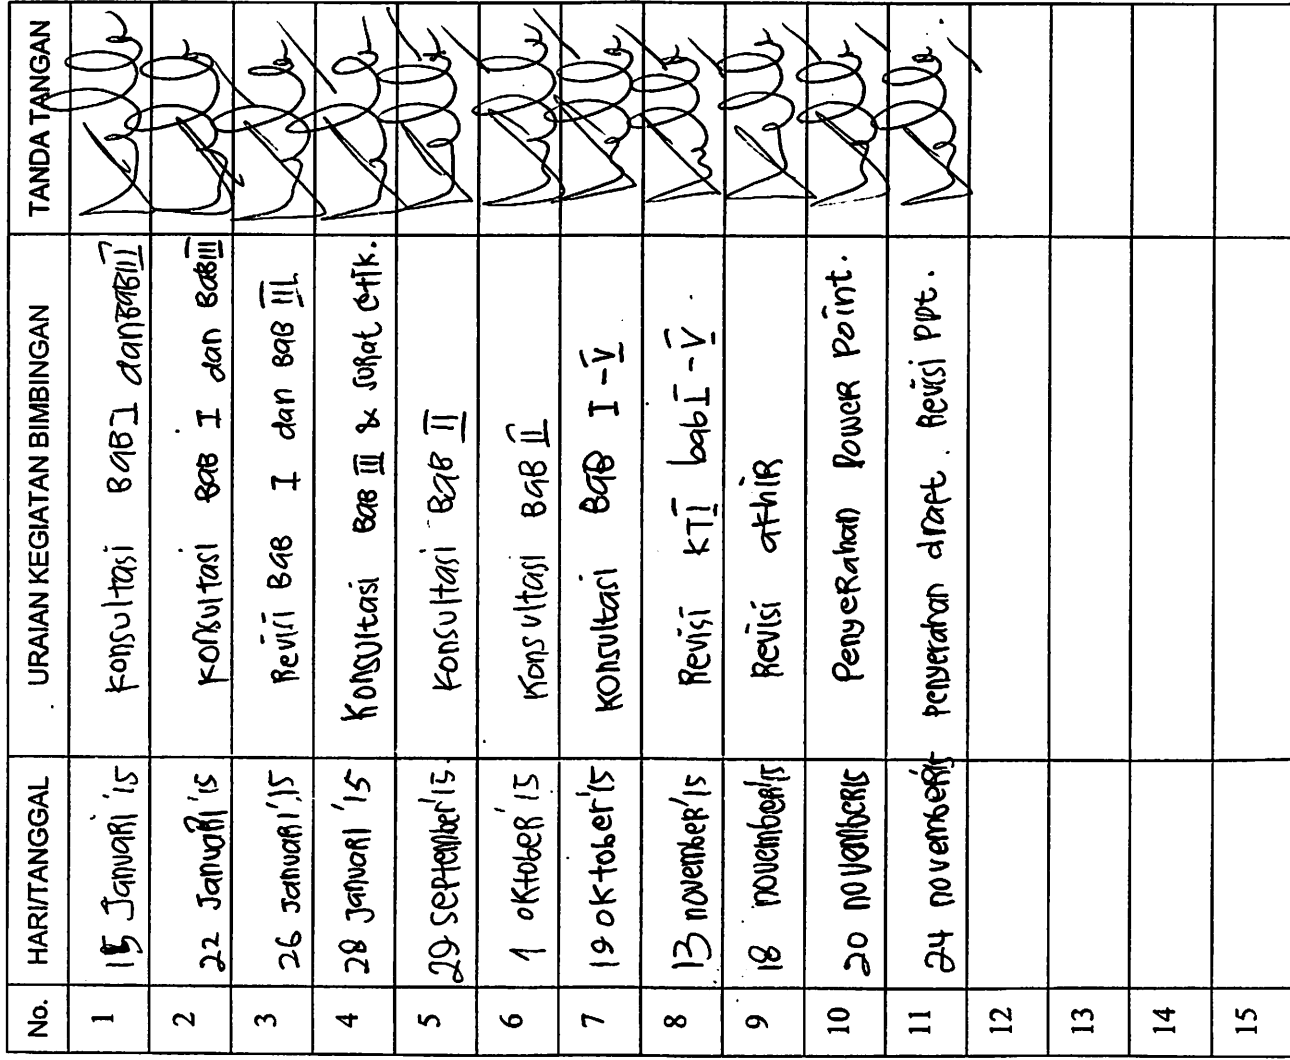 No. HARI/TANGGAL URAIAN KEGIATAN BIMBINGAN TANDA TANGAN
1 15 Januari '15 Konsultasi BAB I dan BAB III
2 22 Januari '15 Konsultasi BAB I dan BAB III
3 26 Januari '15 Revisi BAB I dan BAB III
4 28 Januari '15 Konsultasi BAB III & surat etik.
5 29 September '15 Konsultasi BAB II
6 1 Oktober '15 Konsultasi BAB II
7 19 Oktober '15 Konsultasi BAB I - V
8 13 november '15 Revisi KTI bab I - V.
9 18 november '15 Revisi akhir
10 20 november 15 Penyerahan Power Point.
11 24 november 15 Penyerahan draft. Revisi PPt.
12
13
14
15